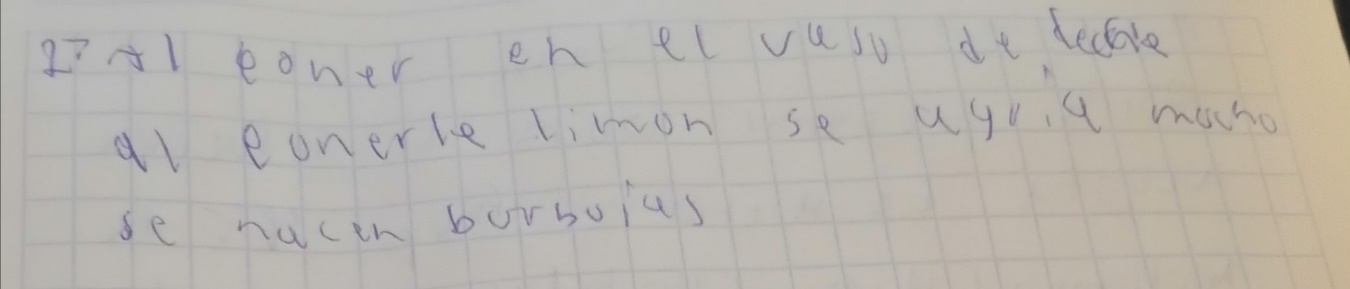 2? Al poner en el vaso de leche
al ponerle limon se agria mucho
se hacen burbujas